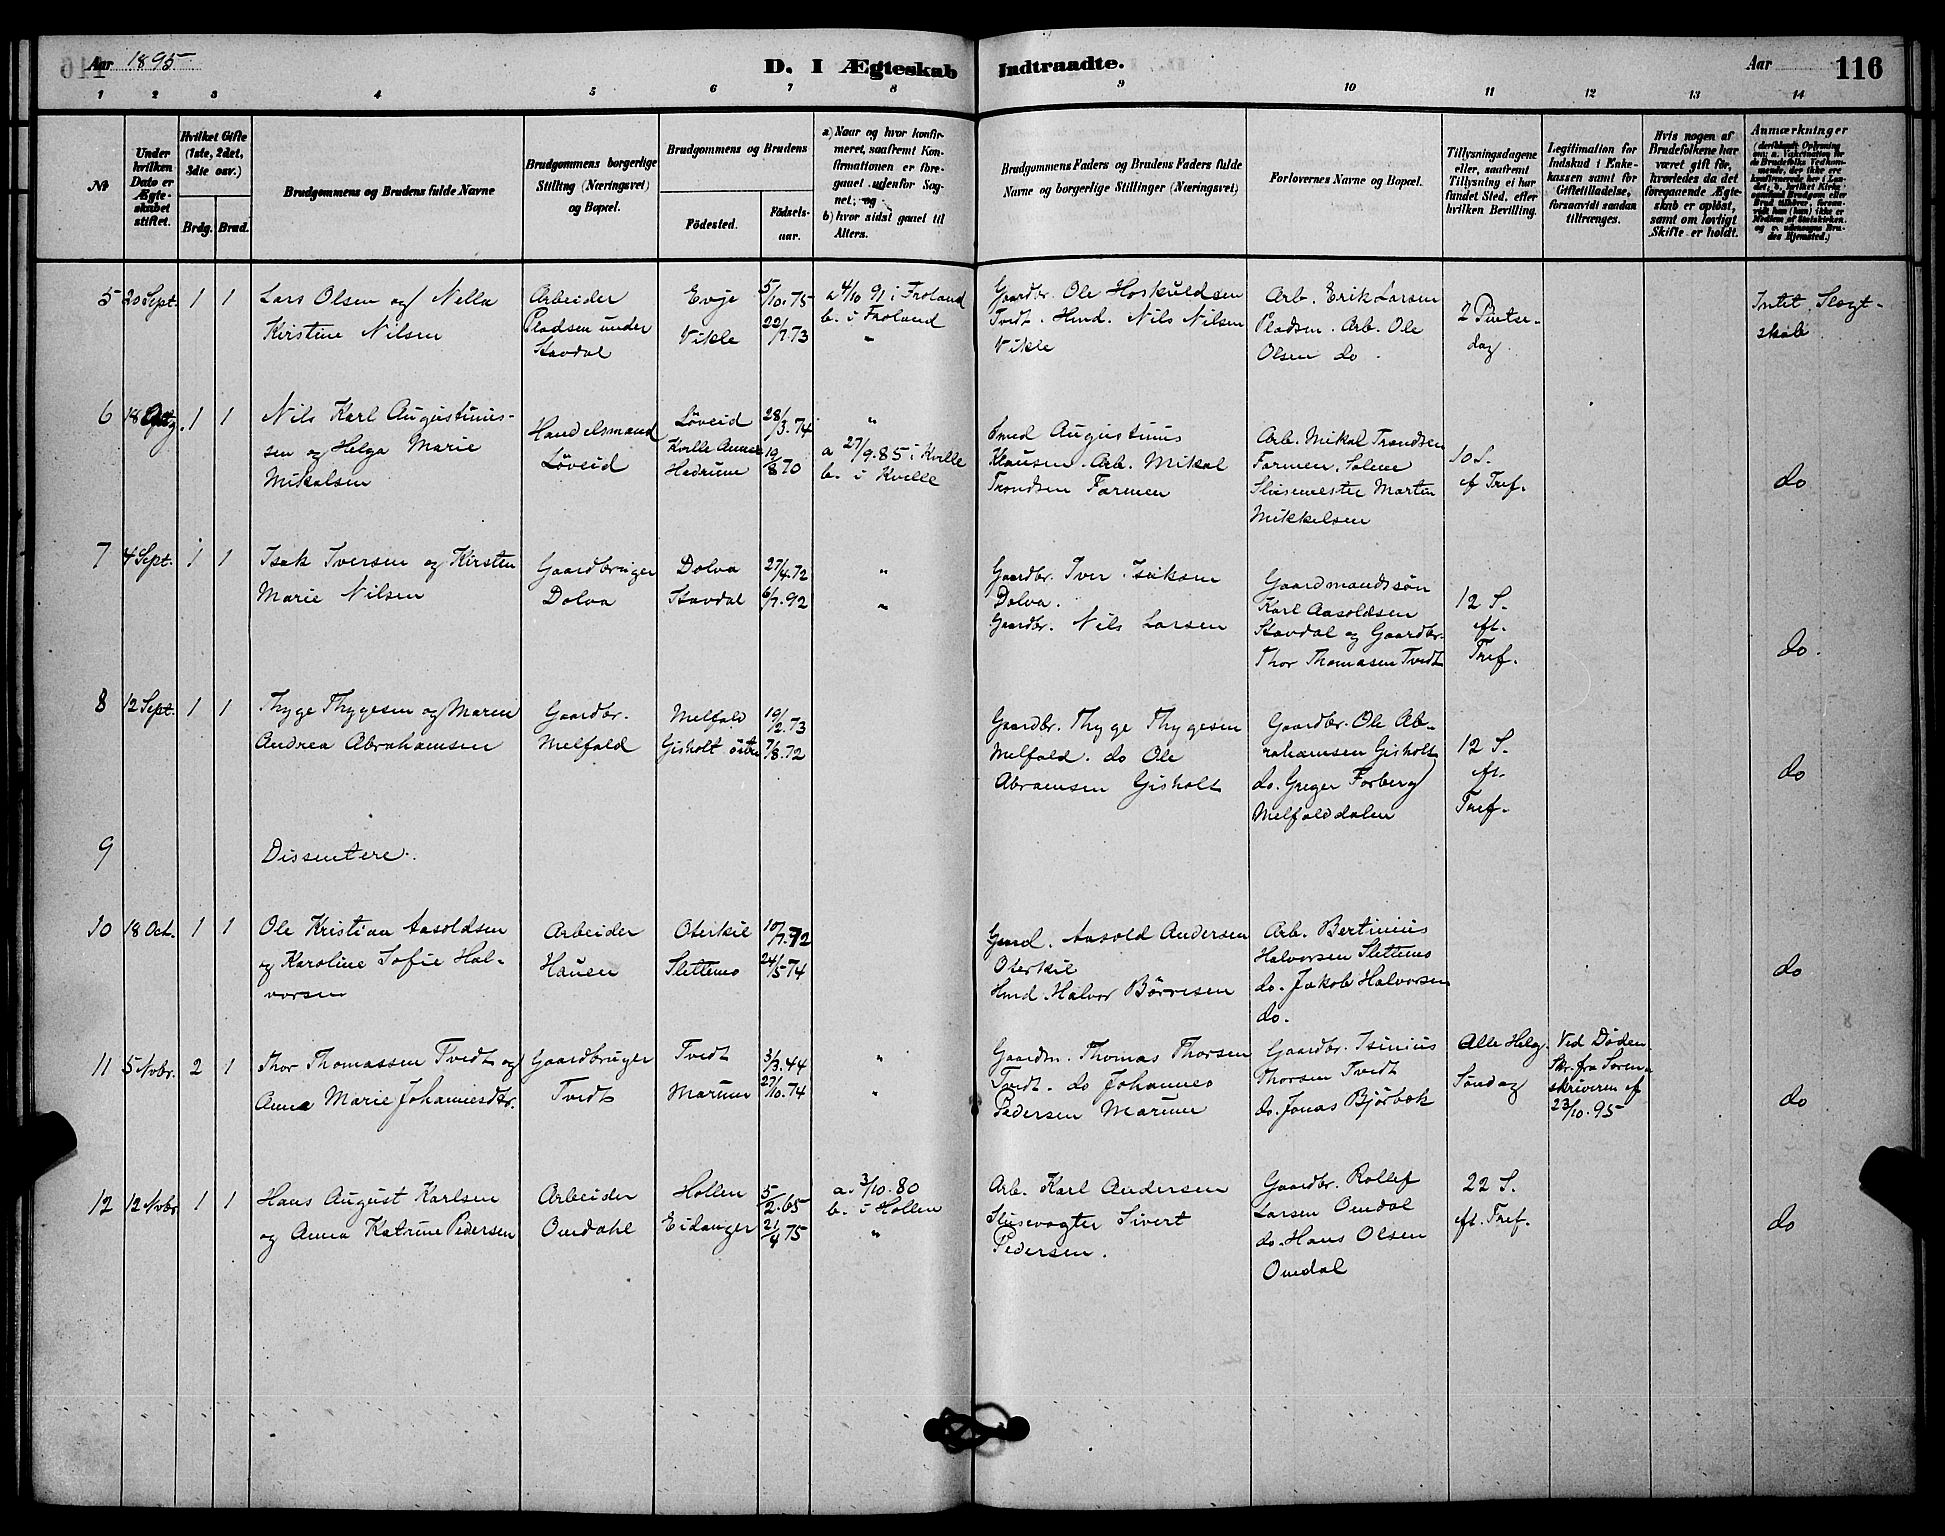 Aar 1895
D. I Ægteskab Indtraadte.
Aar 116
1 2 3 4 5 6 7 8 9 10 11 12 13 14
№
Under hvilken Dato er Ægteskabet stiftet.
Hvilket Gifte (1ste, 2det, 3die osv.)
Brdg. Brud.
Brudgommens og Brudens fulde Navne
Brudgommens borgerlige Stilling (Næringsvei) og Bopæl.
Brudgommens og Brudens
Födested.
Födselsaar.
a) Naar og hvor konfirmeret, saafremt Konfirmationen er foregaaet udenfor Sognet; og
b) hvor sidst gaaet til Alters.
Brudgommens Faders og Brudens Faders fulde Navne og borgerlige Stillinger (Næringsvei)
Forlovernes Navne og Bopæl.
Tillysningsdagene eller, saafremt Tillysning ei har fundet Sted, efter hvilken Bevilling.
Legitimation for Indskud i Enkekassen samt for Giftetilladelse, forsaavidt saadan tiltrænges.
Hvis nogen af Brudefolkene har været gift før, hvorledes da det foregaaende Ægteskab er opløst, samt om lovligt Skifte er holdt.
Anmærkninger
5 20 Sept. 1 1
Lars Olsen og Nella
Kirstine Nilsen
Arbeider
Pladsen under
Stavdal
Evje
Vikle
5/10.75
22/7.73
a 4/10 91 i Froland
b. i Froland
"
Gaardbr. Ole Hoskuldsen
Tvedt. Hmd. Nils Nilsen
Vikle
Arb. Erik Larsen
Pladsen. Arb. Ole
Olsen do.
2 Pintse-
dag.
Intet Slægt-
skab
6 18 Aug. 1 1
Nils Karl Augustinus-
sen og Helga Marie
Mikalsen
Handelsmand
Löveid
Löveid
Kvelle Annex
Hedrum
28/3.74
19/8 70
"
a 27/9.85 i Kvelle
b. i Kvelle
Smed Augustinus
Klausen. Arb. Mikal
Trondsen Farmen
Arb. Mikal Trondsen
Farmen.
Slusemester Martin
Mikkelsen
10 S.
ef Tref.
do
7 4 Sept. 1 1
Isak Iversen og Kirsten
Marie Nilsen
Gaardbruger
Dolva
Dolva
Stavdal
27/4.72
6/7.92
"
"
Gaardbr. Iver Isaksen
Dolva.
Gaardbr. Nils Larsen
Gaardmandssön
Karl Aasoldsen
Stavdal og Gaardbr.
Thor Thomasen Tvedt
12 S.
eft.
Tref.
do.
8 12 Sept. 1 1
Thyge Thygesen og Maren
Andrea Abrahamsen
Gaardbr.
Melfald
Melfald
Gisholt östre
19/2.73
7/8.72
Gaardbr. Thyge Thygesen
Melfald. do Ole
Abramsen Gisholt
Gaardbr. Ole Ab-
rahamsen Gisholt
do. Greger Forberg
Melfalddalen
12 S.
eft.
Tref.
do
9
Dissentere.
10 18 Oct. 1 1
Ole Kristian Aasoldsen
og Karoline Sofie Hal-
vorsen
Arbeider
Hauen
Oterkil
Slettemo
10/7.72
24/5 74
Gaard. Aasold Andersen
Oterkil
Hmd. Halvor Börresen
Arb. Bertinius
Halvorsen Slettemo
do. Jakob Halvorsen
do.
do
11 5 Nvbr. 2 1
Thor Thomassen Tvedt og
Anna Marie Johannesdtr.
Gaardbruger
Tvedt
Tvedt
Marum
3/3.44
27/10.74
"
"
Gaardm. Thomas Thorsen
Tvedt. do Johannes
Pedersen Marum
Gaardbr. Isinius
Thorsen Tvedt
do. Jonas Björbæk
Alle Helg.
Söndag
Ved Döden
Skr. fra Soren-
skriveren af
23/10.95
do
12 12 Nvbr 1 1
Hans August Karlsen
og Anna Katrine Pedersen
Arbeider
Omdahl
Hollen
Eidanger
5/2.65
21/4 75
a. 3/10.80
b. i Hollen
"
Arb. Karl Andersen
Slusevogter Sivert
Pedersen.
Gaardbr. Rollef
Larsen Omdal
do. Hans Olsen
Omdal
22 S.
eft. Tref.
do